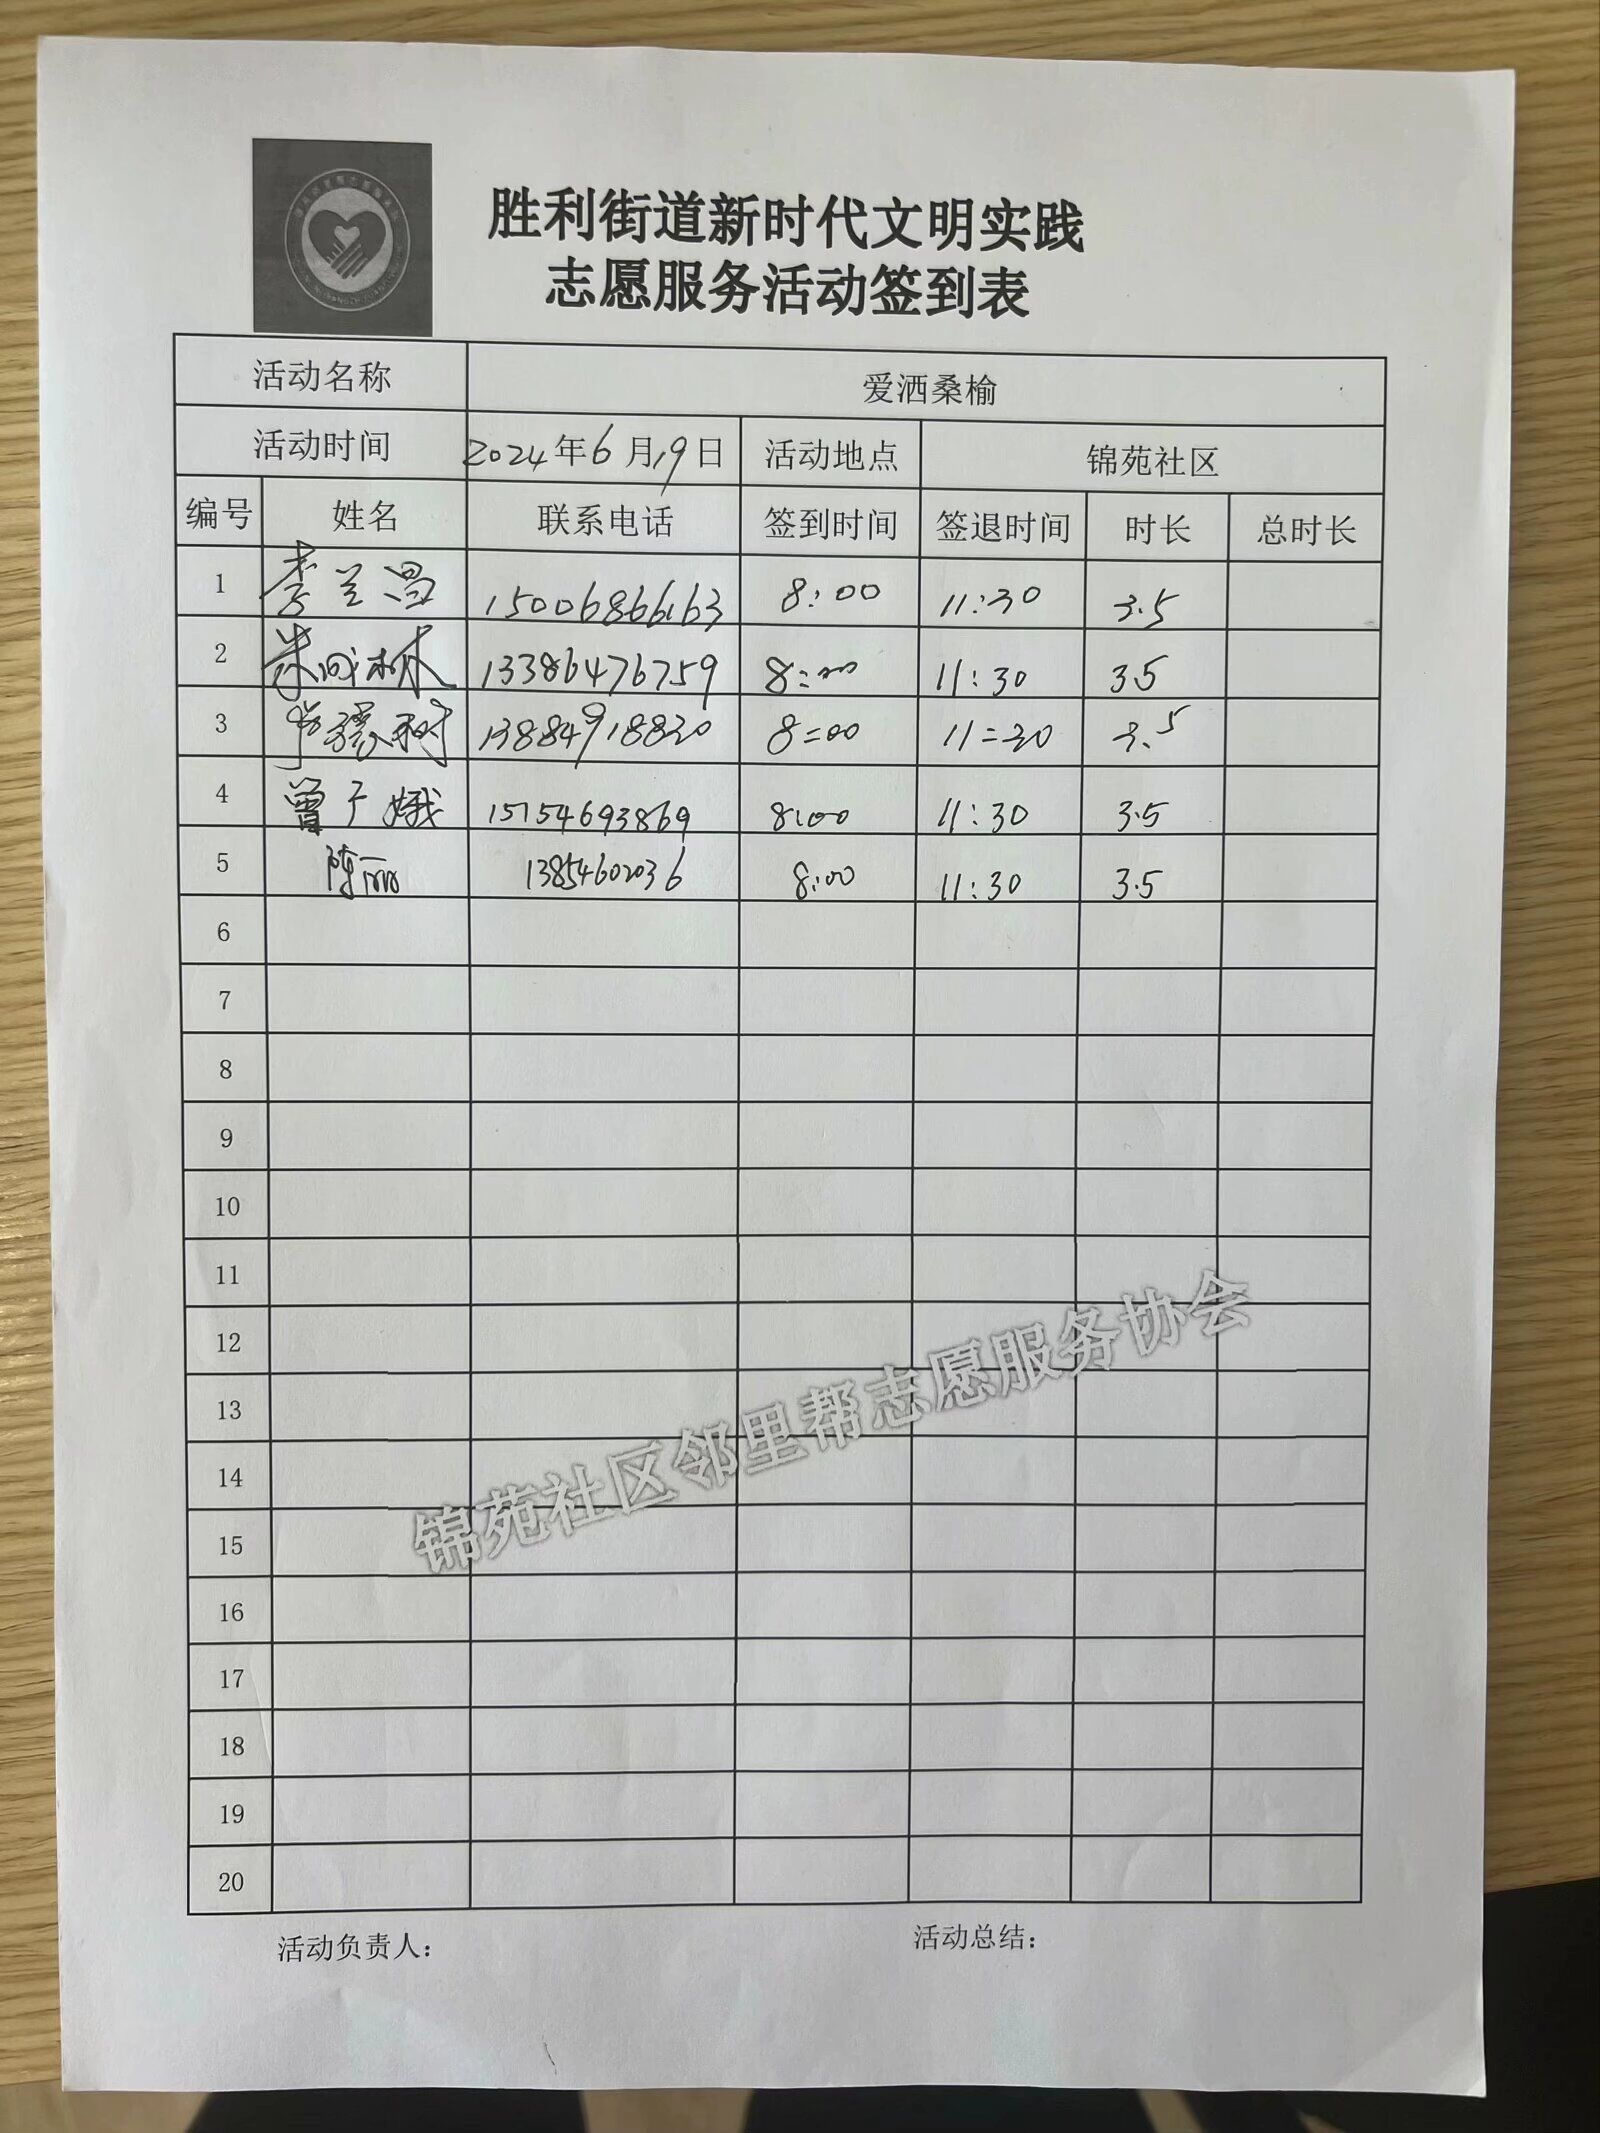 胜利街道新时代文明实践
志愿服务活动签到表
活动名称 爱洒桑榆
活动时间 2024年6月19日 活动地点 锦苑社区
编号 姓名 联系电话 签到时间 签退时间 时长 总时长
1 李兰昌 15006866163 8:00 11:30 3.5
2 朱成林 13386476759 8:00 11:30 3.5
3 13884918820 8:00 11:30 3.5
4 曾于娥 15154693869 8:00 11:30 3.5
5 陈丽 13854602036 8:00 11:30 3.5
6
7
8
9
10
11
12
13
14
15
16
17
18
19
20
锦苑社区邻里帮志愿服务协会
活动负责人: 活动总结: